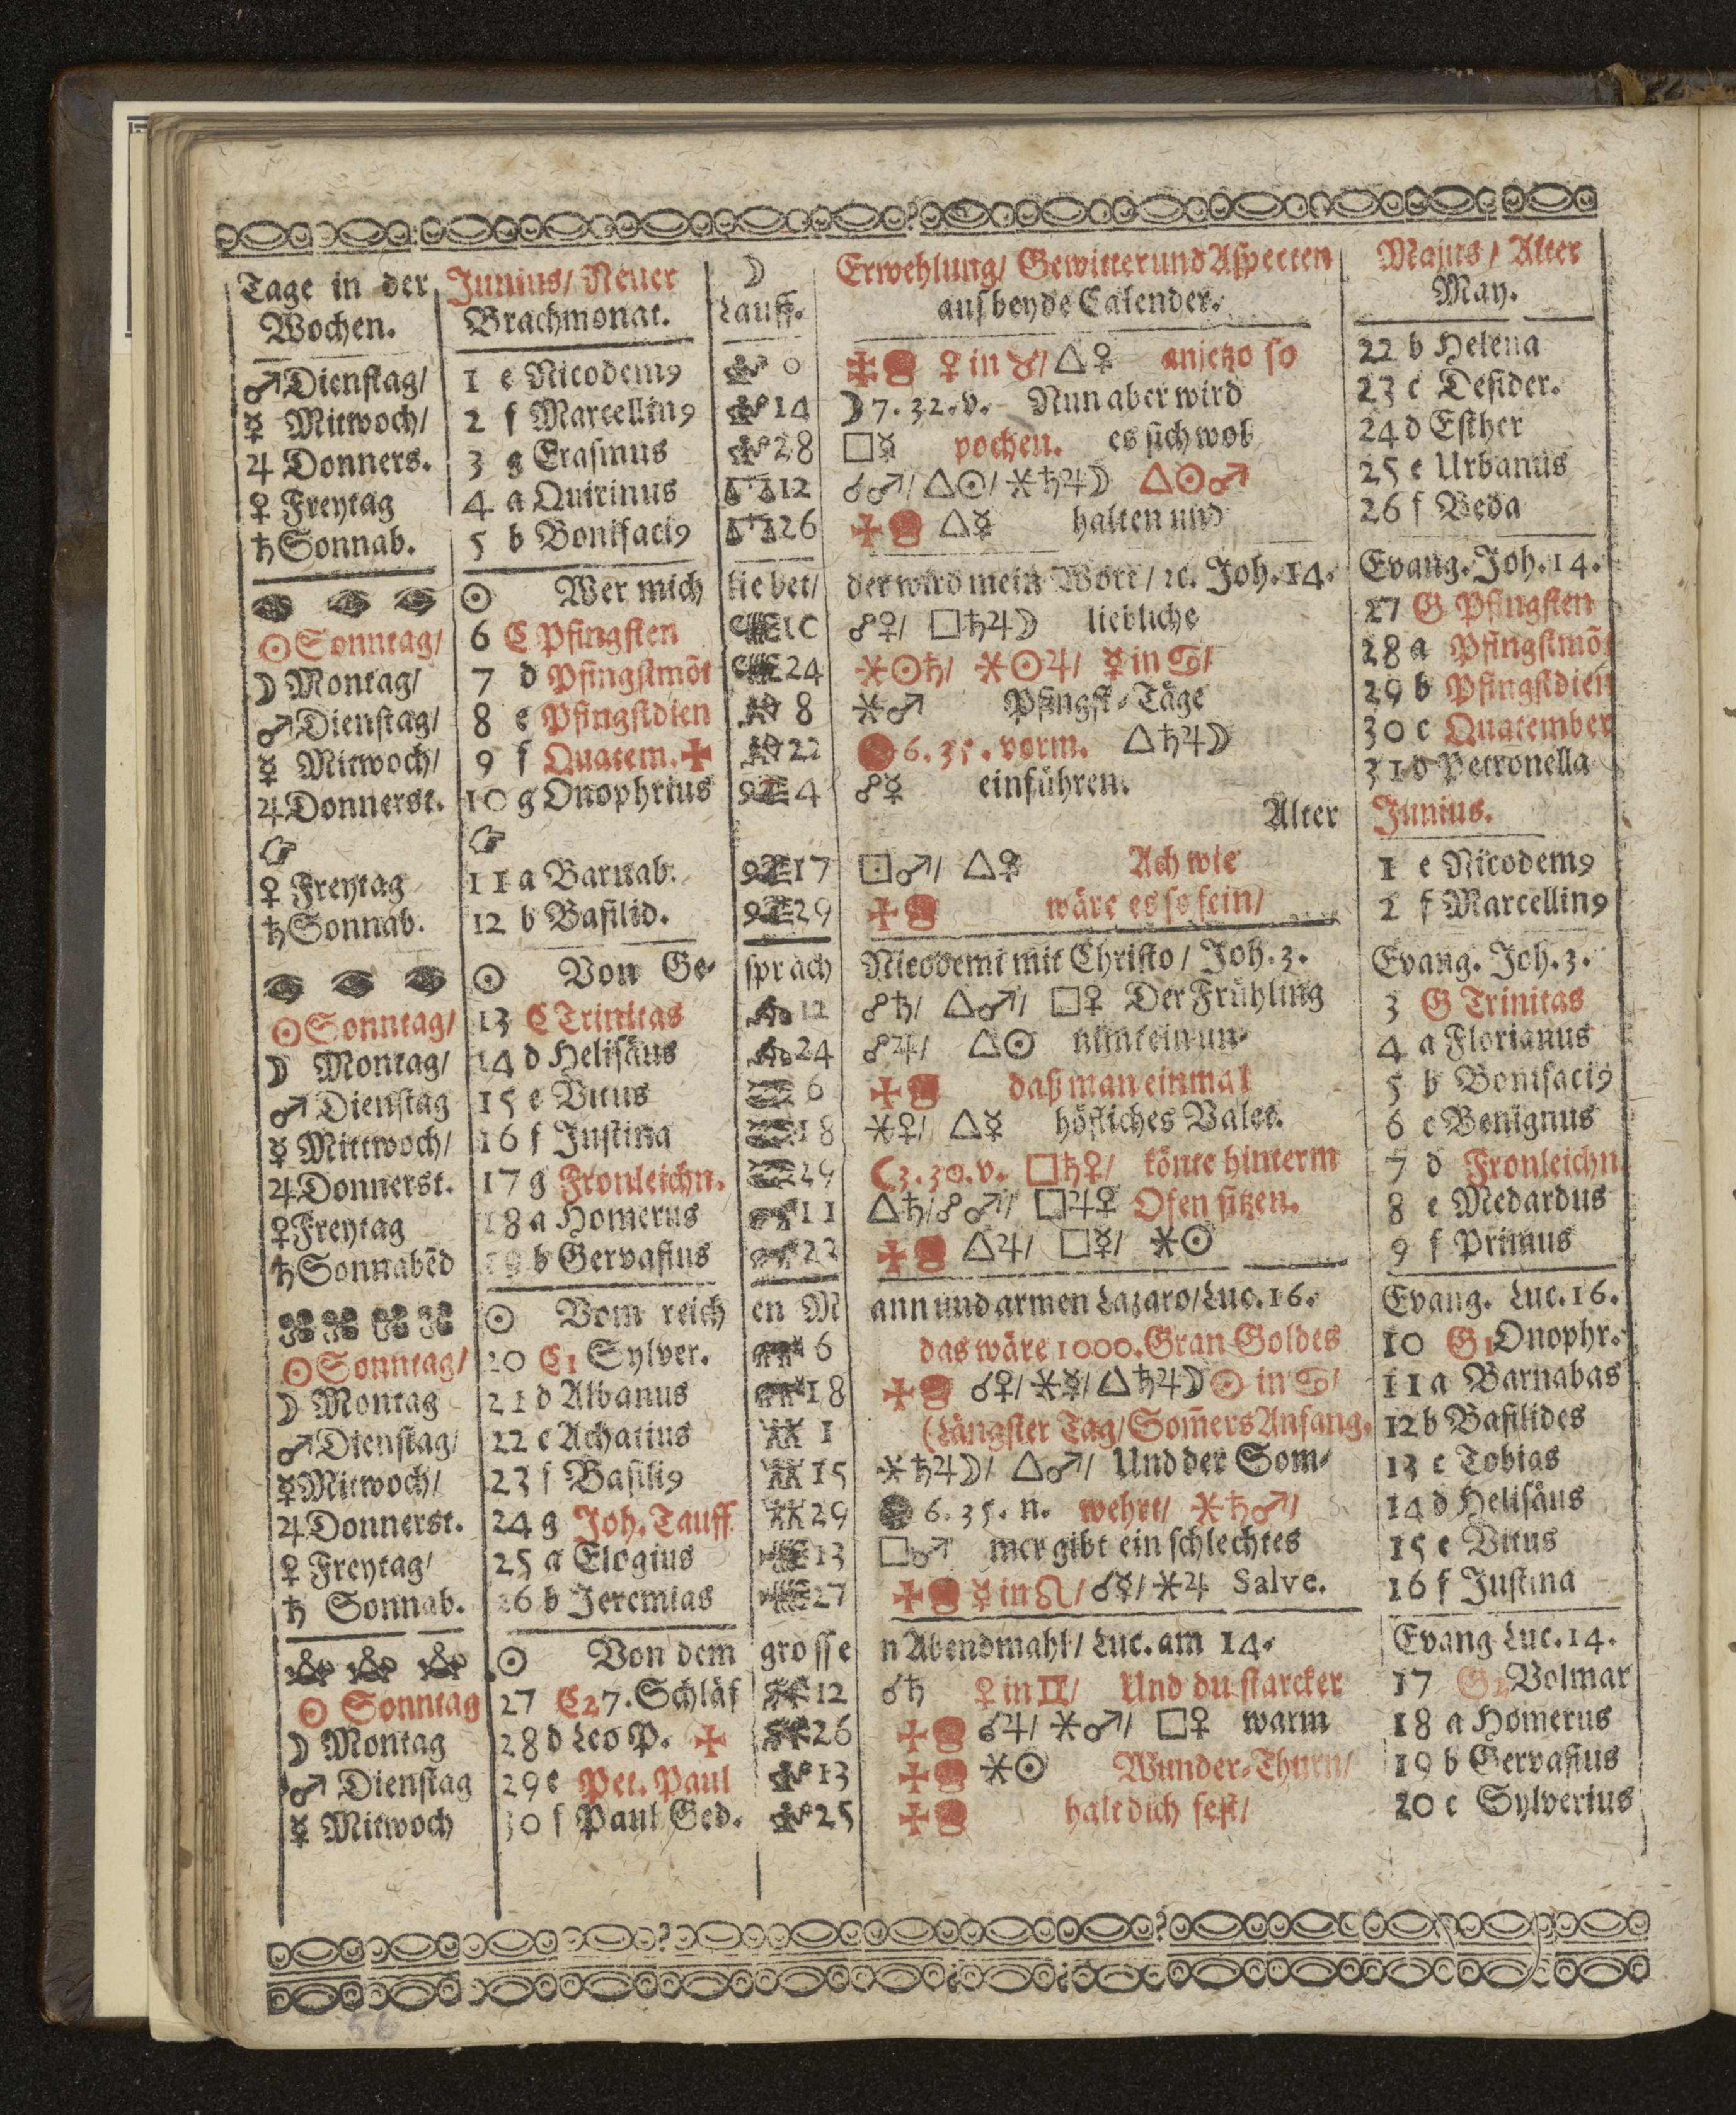 Tage in der Junius/ Neuer ☽ Erwehlung/ Gewitter und Aspecten Majus/ Alter
Wochen. Brachmonat. Lauff. auf beyde Calender. May.
♂ Dienstag/ 1 e Nicodemꝰ 0 ♀ in ♉/ △♀ anjetzo so 22 b Helena
☿ Mitwoch/ 2 f Marcellinꝰ 14 ☽ 7. 32. v. Nun aber wird 23 c Desider.
♃ Donners. 3 g Erasmus 28 □☿ pochen. es sich wol 24 d Esther
♀ Freytag 4 a Quirinus 12 ☌♂/ △☉/ ⚹♄♃☽ △☉♂ 25 e Urbanus
♄ Sonnab. 5 b Bonifaciꝰ 26 △☿ halten und 26 f Beda
☉ Wer mich lie bet/ der wird mein Wort/ ꝛc. Joh. 14. Evang. Joh. 14.
☉ Sonntag/ 6 C Pfingsten 10 ☍♀/ □♄♃☽ liebliche 27 G Pfingsten
☽ Montag/ 7 d Pfingstmõt 24 ⚹☉♄/ ⚹☉♃/ ☿ in ♋/ 28 a Pfingstmõt
♂ Dienstag/ 8 e Pfingstdien 8 ⚹♂ Pfingst-Täge 29 b Pfingstdien
☿ Mitwoch/ 9 f Quatem. ✠ 22 6. 35. vorm. △♄♃☽ 30 c Quatember
♃ Donnerst. 10 g Onophrius 4 ☍☿ einführen. 31 d Petronella
☞ ☞ Alter Junius.
♀ Freytag 11 a Barnab. 17 □♂/ △♀ Ach wie 1 e Nicodemꝰ
♄ Sonnab. 12 b Basilid. 29 wäre es so fein/ 2 f Marcellinꝰ
☉ Von Ge- spräch Nicodemi mit Christo/ Joh. 3. Evang. Joh. 3.
☉ Sonntag/ 13 C Trinitas 12 ☍♄/ △♂/ □♀ Der Frühling 3 G Trinitas
☽ Montag/ 14 d Helisäus 24 ☍♃/ △☉ nimt ein un- 4 a Florianus
♂ Dienstag 15 e Vitus 6 daß man einmal 5 b Bonifaciꝰ
☿ Mittwoch/ 16 f Justina 18 ⚹♀/ △☿ höfliches Valet. 6 c Benignus
♃ Donnerst. 17 g Fronleichn. 29 ☾ 3. 30. v. □♄♀/ könte hinterm 7 d Fronleichn.
♀ Freytag 18 a Homerus 11 △♄/ ☍♂/ □♃♀ Ofen sitzen. 8 e Medardus
♄ Sonnabẽd 19 b Gervasius 23 △♃/ □☿/ ⚹☉ 9 f Primus
☉ Vom reich en M ann und armen Lazaro/ Luc. 16. Evang. Luc. 16.
☉ Sonntag/ 20 C1 Sylver. 6 das wäre 1000. Gran Goldes 10 G1 Onophr.
☽ Montag 21 d Albanus 18 ☌♀/ ⚹☿/ △♄♃☽ ☉ in ♋/ 11 a Barnabas
♂ Dienstag/ 22 e Achatius 1 (Längster Tag/ Som̃ers Anfang. 12 b Basilides
☿ Mitwoch/ 23 f Basiliꝰ 15 ⚹♄♃☽/ △♂/ Und der Som- 13 c Tobias
♃ Donnerst. 24 g Joh. Tauff. 29 6. 35. n. wehrt/ ⚹♄♂/ 14 d Helisäus
♀ Freytag/ 25 a Elogius 13 □♂ mer gibt ein schlechtes 15 e Vitus
♄ Sonnab. 26 b Jeremias 27 ☿ in ♌/ ☌☿/ ⚹♃ Salve. 16 f Justina
☉ Von dem grosse n Abendmahl/ Luc. am 14. Evang. Luc. 14.
☉ Sonntag 27 C2 7. Schläf 12 ☌♄ ♀ in ♊/ Und du starcker 17 G2 Volmar
☽ Montag 28 d Leo P. ✠ 26 ☌♃/ ⚹♂/ □♀ warm 18 a Homerus
♂ Dienstag 29 e Pet. Paul 13 ⚹☉ Wunder-Thurn/ 19 b Gervasius
☿ Mitwoch 30 f Paul Ged. 25 halt dich fest/ 20 c Sylverius
56